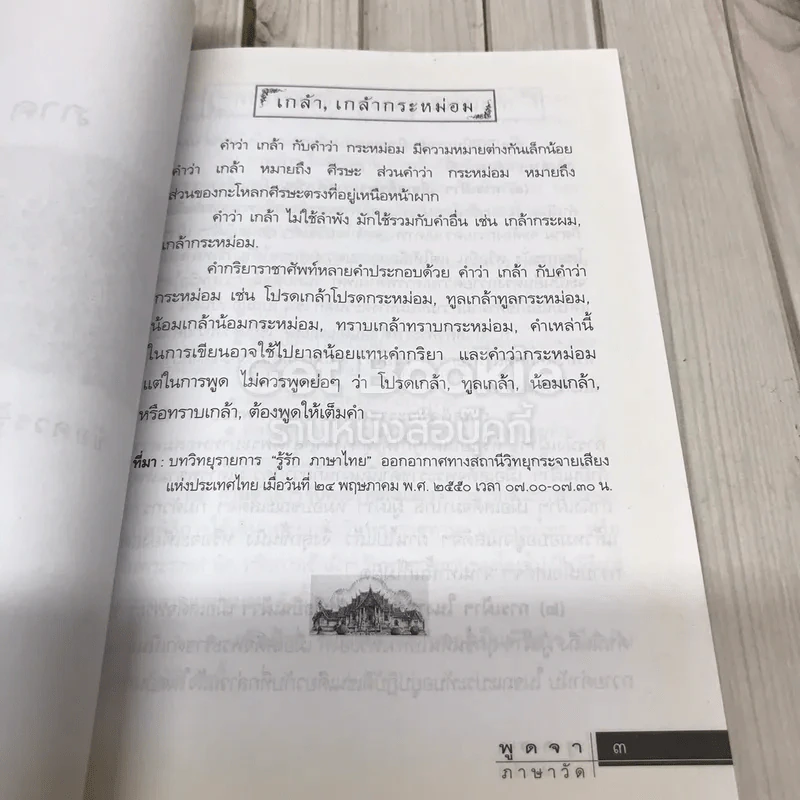 เกล้า, เกล้ากระหม่อม
คำว่า เกล้า กับคำว่า กระหม่อม มีความหมายต่างกันเล็กน้อย
คำว่า เกล้า หมายถึง ศีรษะ ส่วนคำว่า กระหม่อม หมายถึง
ส่วนของกะโหลกศีรษะตรงที่อยู่เหนือหน้าผาก
คำว่า เกล้า ไม่ใช้ลำพัง มักใช้รวมกับคำอื่น เช่น เกล้ากระผม,
เกล้ากระหม่อม.
คำกริยาราชาศัพท์หลายคำประกอบด้วย คำว่า เกล้า กับคำว่า
กระหม่อม เช่น โปรดเกล้าโปรดกระหม่อม, ทูลเกล้าทูลกระหม่อม,
น้อมเกล้าน้อมกระหม่อม, ทราบเกล้าทราบกระหม่อม, คำเหล่านี้
ในการเขียนอาจใช้ไปยาลน้อยแทนคำกริยา และคำว่ากระหม่อม
แต่ในการพูด ไม่ควรพูดย่อๆ ว่า โปรดเกล้า, ทูลเกล้า, น้อมเกล้า,
หรือทราบเกล้า, ต้องพูดให้เต็มคำ
Get Bookie
ร้านหนังสือบุ๊คกี้
ที่มา : บทวิทยุรายการ “รู้รัก ภาษาไทย” ออกอากาศทางสถานีวิทยุกระจายเสียง
แห่งประเทศไทย เมื่อวันที่ ๒๔ พฤษภาคม พ.ศ. ๒๕๕๐ เวลา ๐๗.๐๐-๐๗.๓๐ น.
พูดจา ๓
ภาษาวัด